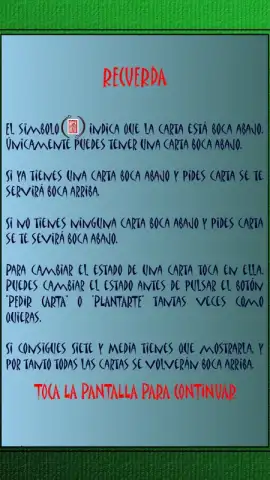 RECUERDA
EL SÍMBOLO ( ) INDICA QUE LA CARTA ESTÁ BOCA ABAJO.
ÚNICAMENTE PUEDES TENER UNA CARTA BOCA ABAJO.
SI YA TIENES UNA CARTA BOCA ABAJO Y PIDES CARTA SE TE
SERVIRÁ BOCA ARRIBA.
SI NO TIENES NINGUNA CARTA BOCA ABAJO Y PIDES CARTA
SE TE SEVIRÁ BOCA ABAJO.
PARA CAMBIAR EL ESTADO DE UNA CARTA TOCA EN ELLA.
PUEDES CAMBIAR EL ESTADO ANTES DE PULSAR EL BOTÓN
"PEDIR CARTA" O "PLANTARTE" TANTAS VECES COMO
QUIERAS.
SI CONSIGUES SIETE Y MEDIA TIENES QUE MOSTRARLA, Y
POR TANTO TODAS LAS CARTAS SE VOLVERÁN BOCA ARRIBA.
TOCA LA PANTALLA PARA CONTINUAR